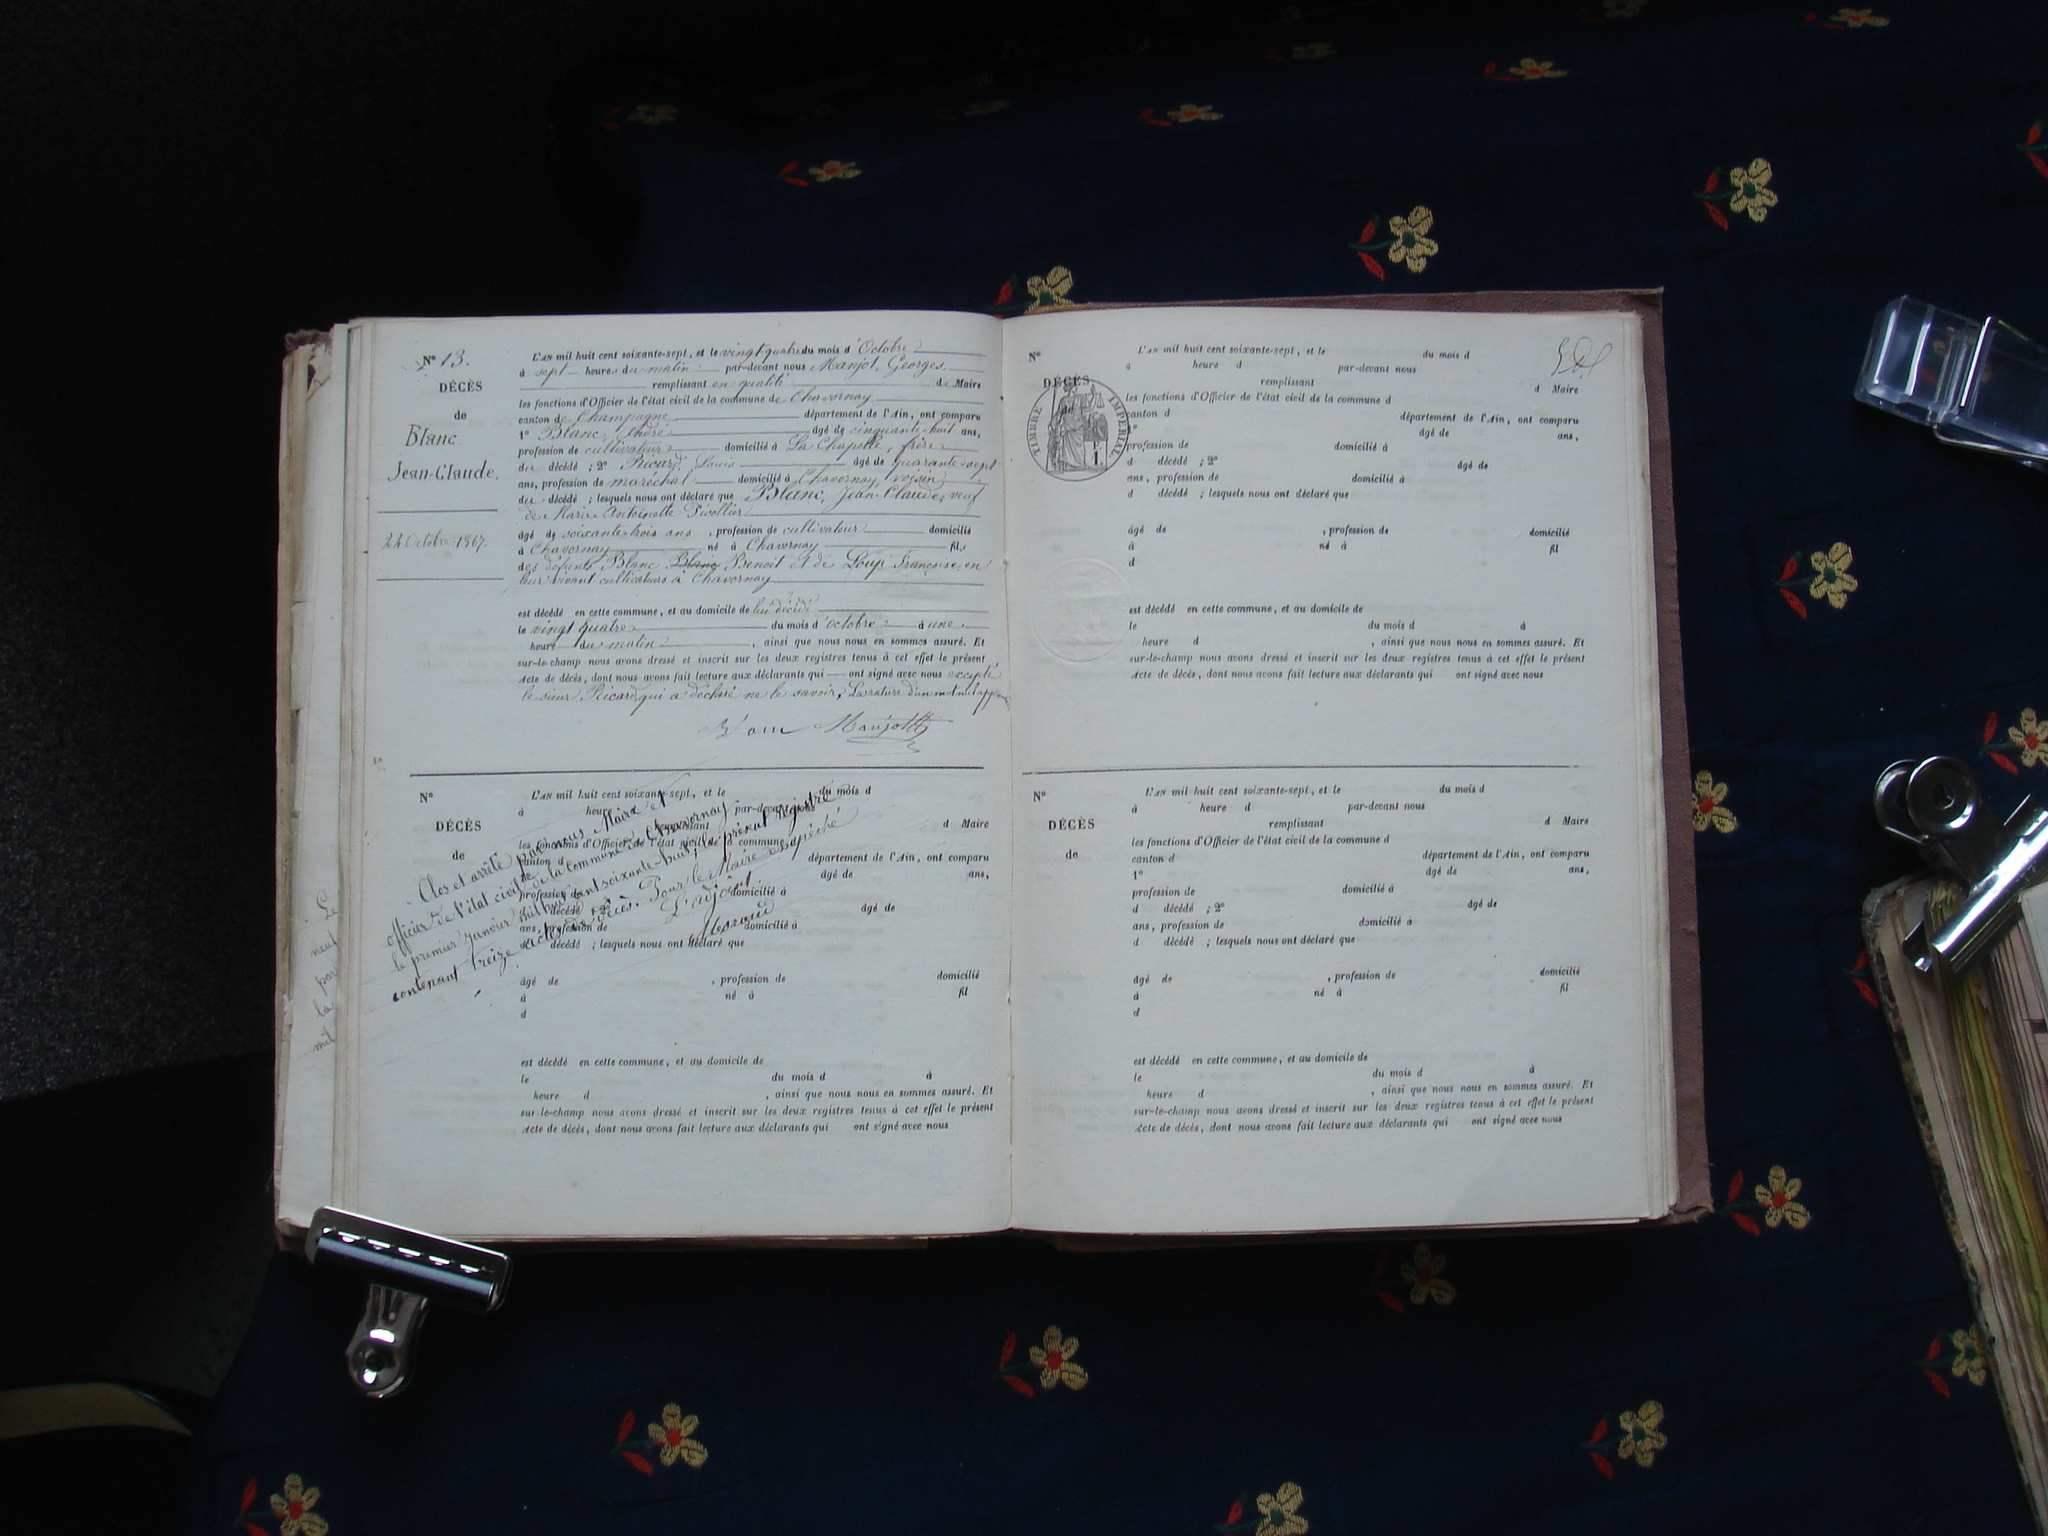 N° 13.
DÉCÈS
de
Blanc
Jean-Claude.
24 Octobre 1867.
L'AN mil huit cent soixante-sept, et le vingt quatre du mois d'Octobre
à sept heures du matin par-devant nous Manjot, Georges
remplissant en qualité de Maire
les fonctions d'Officier de l'état civil de la commune de Chavornay
canton de Champagne département de l'Ain, ont comparu
1° Blanc, André âgé de cinquante-huit ans,
profession de cultivateur domicilié à La Chapelle, frère
du décédé ; 2° Ricard, Louis âgé de quarante-sept
ans, profession de maréchal domicilié à Chavornay, voisin
du décédé ; lesquels nous ont déclaré que Blanc, Jean-Claude, veuf
de Marie Antoinette
âgé de soixante-trois ans, profession de cultivateur domicilié
à Chavornay né à Chavornay fils
des défunts Blanc Blanc Benoit et de Loup Françoise, en
leur vivant cultivateurs à Chavornay
est décédé en cette commune, et au domicile de lui décédé
le vingt quatre du mois d'octobre à une
heure du matin, ainsi que nous nous en sommes assuré. Et
sur-le-champ nous avons dressé et inscrit sur les deux registres tenus à cet effet le présent
Acte de décès, dont nous avons fait lecture aux déclarants qui ont signé avec nous excepté
le sieur Ricard qui a déclaré ne le savoir, La rature d'un mot
Manjot
N°
DÉCÈS
de
L'AN mil huit cent soixante-sept, et le du mois d
à heure par-devant nous
remplissant d Maire
les fonctions d'Officier de l'état civil de la commune d
canton d département de l'Ain, ont comparu
âgé de ans,
profession de domicilié à
décédé ; 2° âgé de
ans, profession de domicilié à
d décédé ; lesquels nous ont déclaré que
Clos et arrêté par nous Maire et
officier de l'état civil de la commune de Chavornay
le premier Janvier mil huit cent soixante-huit, le présent registre
contenant treize actes de décès. Pour le Maire empêché
L'adjoint
âgé de , profession de domicilié
à né à fil
d
est décédé en cette commune, et au domicile de
le du mois d à
heure d , ainsi que nous nous en sommes assuré. Et
sur-le-champ nous avons dressé et inscrit sur les deux registres tenus à cet effet le présent
Acte de décès, dont nous avons fait lecture aux déclarants qui ont signé avec nous
Le
par
la
N°
DÉCÈS
de
TIMBRE IMPERIAL
1
L'AN mil huit cent soixante-sept, et le du mois d
à heure d par-devant nous
remplissant d Maire
les fonctions d'Officier de l'état civil de la commune d
canton d département de l'Ain, ont comparu
1° âgé de ans,
profession de domicilié à
d décédé ; 2° âgé de
ans, profession de domicilié à
d décédé ; lesquels nous ont déclaré que
âgé de , profession de domicilié
à né à fil
d
est décédé en cette commune, et au domicile de
le du mois d à
heure d , ainsi que nous nous en sommes assuré. Et
sur-le-champ nous avons dressé et inscrit sur les deux registres tenus à cet effet le présent
Acte de décès, dont nous avons fait lecture aux déclarants qui ont signé avec nous
N°
DÉCÈS
de
L'AN mil huit cent soixante-sept, et le du mois d
à heure d par-devant nous
remplissant d Maire
les fonctions d'Officier de l'état civil de la commune d
canton d département de l'Ain, ont comparu
1° âgé de ans,
profession de domicilié à
d décédé ; 2° âgé de
ans, profession de domicilié à
d décédé ; lesquels nous ont déclaré que
âgé de , profession de domicilié
à né à fil
d
est décédé en cette commune, et au domicile de
le du mois d à
heure d , ainsi que nous nous en sommes assuré. Et
sur-le-champ nous avons dressé et inscrit sur les deux registres tenus à cet effet le présent
Acte de décès, dont nous avons fait lecture aux déclarants qui ont signé avec nous